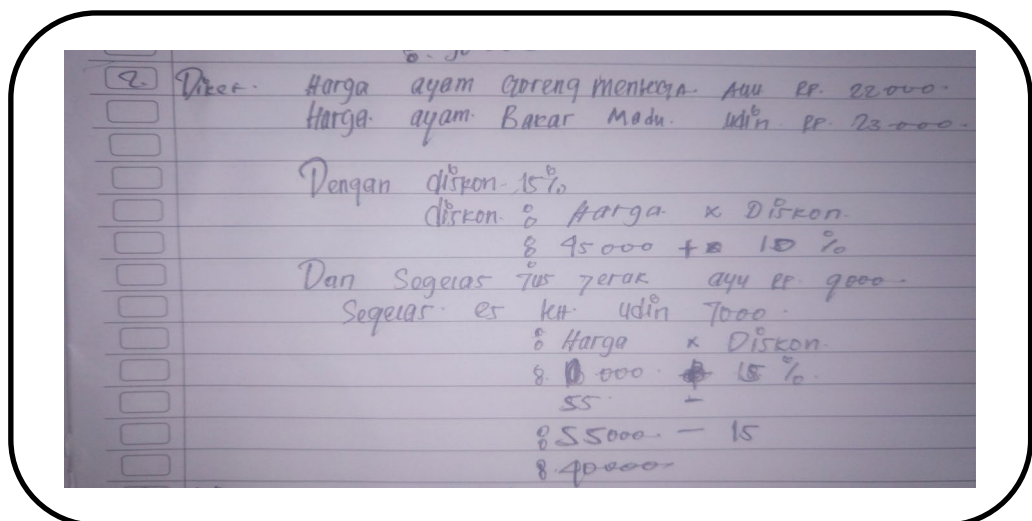 2. Diket. Harga ayam Goreng mentega Ayu RP. 22000.
Harga. ayam. Bakar Madu. udin RP. 23000.
Dengan diskon. 15%
diskon : Harga x Diskon.
: 45000 + 10 %
Dan Segelas Jus Jeruk ayu RP. 9000.
Segelas. es udin 7000.
: Harga x Diskon.
: 000. 15 %.
55 -
: 55000 - 15
: 40000